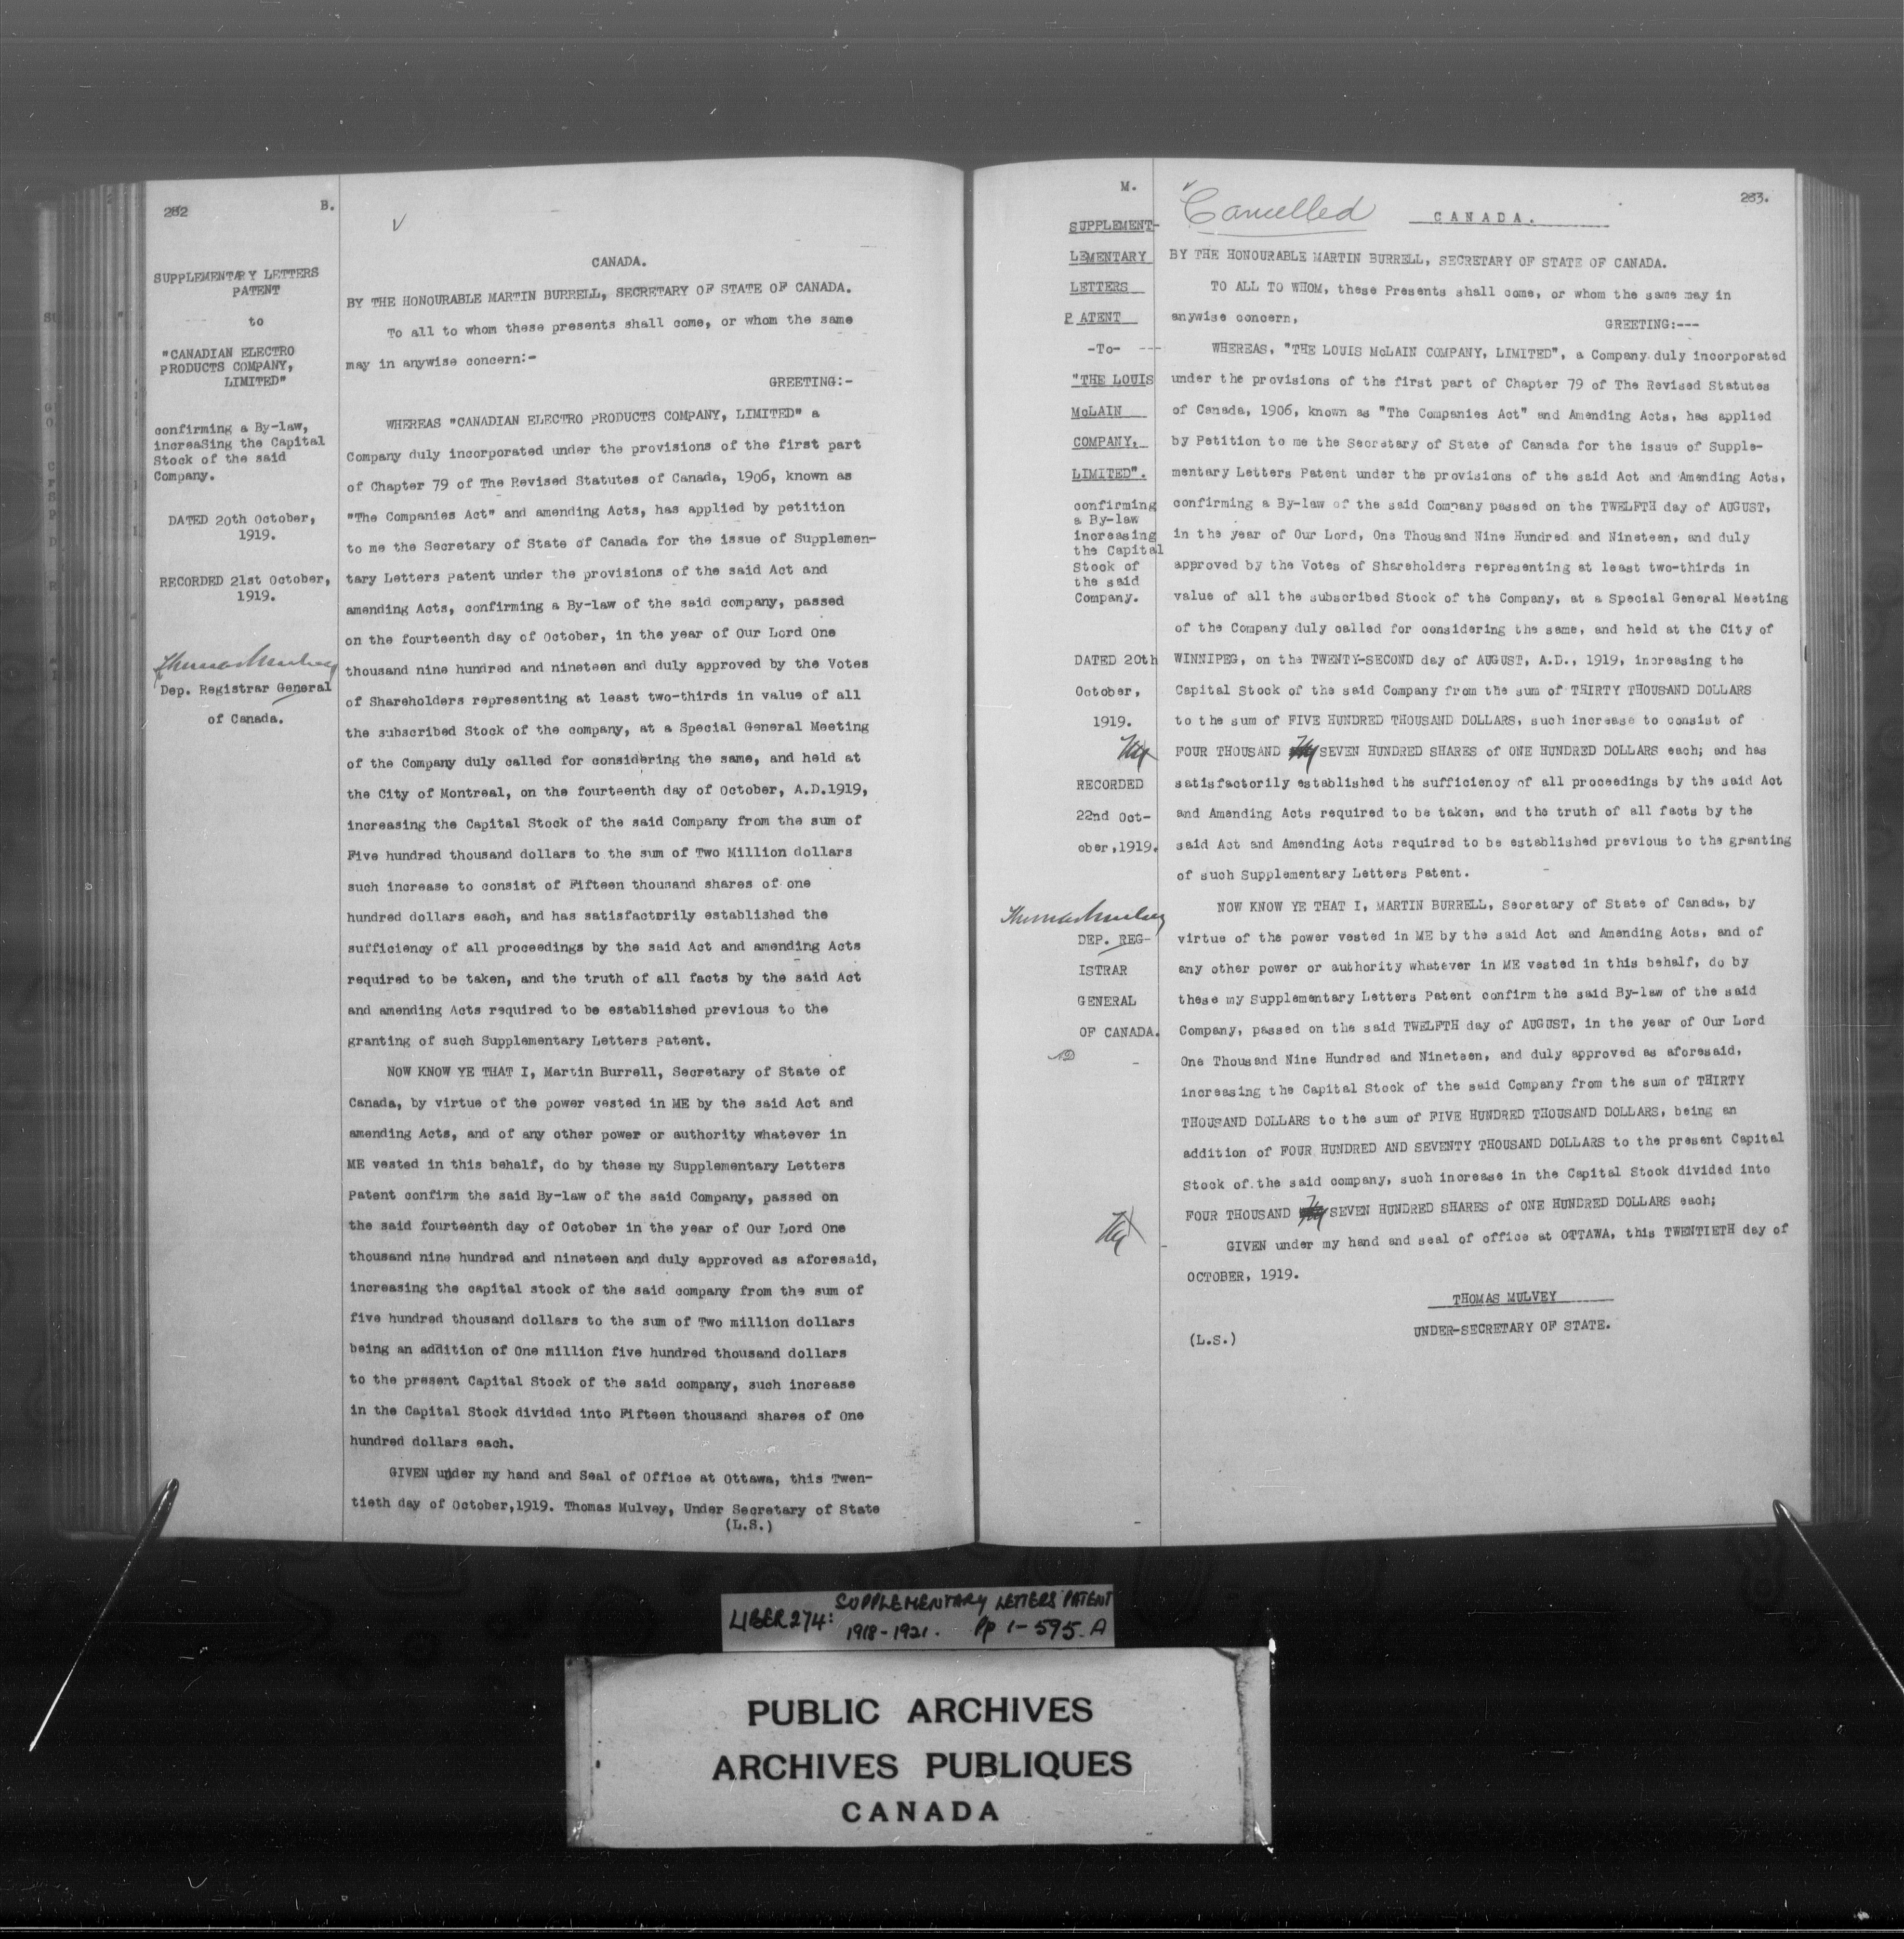 282
B.
SUPPLEMENTARY LETTERS
PATENT
to
"CANADIAN ELECTRO
PRODUCTS COMPANY,
LIMITED"
confirming a By-law,
increasing the Capital
Stock of the said
Company.
DATED 20th October,
1919.
RECORDED 21st October,
1919.
Thomas Mulvey
Dep. Registrar General
of Canada.
CANADA.
BY THE HONOURABLE MARTIN BURRELL, SECRETARY OF STATE OF CANADA.
To all to whom these presents shall come, or whom the same
may in anywise concern:-
GREETING:-
WHEREAS "CANADIAN ELECTRO PRODUCTS COMPANY, LIMITED" a
Company duly incorporated under the provisions of the first part
of Chapter 79 of The Revised Statutes of Canada, 1906, known as
"The Companies Act" and amending Acts, has applied by petition
to me the Secretary of State of Canada for the issue of Supplemen-
tary Letters Patent under the provisions of the said Act and
amending Acts, confirming a By-law of the said company, passed
on the fourteenth day of October, in the year of Our Lord One
thousand nine hundred and nineteen and duly approved by the Votes
of Shareholders representing at least two-thirds in value of all
the subscribed Stock of the company, at a Special General Meeting
of the Company duly called for considering the same, and held at
the City of Montreal, on the fourteenth day of October, A.D.1919,
increasing the Capital Stock of the said Company from the sum of
Five hundred thousand dollars to the sum of Two Million dollars
such increase to consist of Fifteen thousand shares of one
hundred dollars each, and has satisfactorily established the
sufficiency of all proceedings by the said Act and amending Acts
required to be taken, and the truth of all facts by the said Act
and amending Acts required to be established previous to the
granting of such Supplementary Letters Patent.
NOW KNOW YE THAT I, Martin Burrell, Secretary of State of
Canada, by virtue of the power vested in ME by the said Act and
amending Acts, and of any other power or authority whatever in
ME vested in this behalf, do by these my Supplementary Letters
Patent confirm the said By-law of the said Company, passed on
the said fourteenth day of October in the year of Our Lord One
thousand nine hundred and nineteen and duly approved as aforesaid,
increasing the capital stock of the said company from the sum of
five hundred thousand dollars to the sum of Two million dollars
being an addition of One million five hundred thousand dollars
to the present Capital Stock of the said company, such increase
in the Capital Stock divided into Fifteen thousand shares of One
hundred dollars each.
GIVEN under my hand and Seal of Office at Ottawa, this Twen-
tieth day of October,1919. Thomas Mulvey, Under Secretary of State
(L.S.)
M.
SUPPLEMENT-
LEMENTARY
LETTERS
P ATENT
-To- ---
"THE LOUIS
McLAIN
COMPANY,
LIMITED".
confirming
a By-law
increasing
the Capital
Stock of
the said
Company.
DATED 20th
October,
1919.
RECORDED
22nd Oct-
ober,1919.
Thomas Mulvey
DEP. REG-
ISTRAR
GENERAL
OF CANADA.
Cancelled
CANADA.
283.
BY THE HONOURABLE MARTIN BURRELL, SECRETARY OF STATE OF CANADA.
TO ALL TO WHOM, these Presents shall come, or whom the same may in
anywise concern,
GREETING:---
WHEREAS, "THE LOUIS McLAIN COMPANY, LIMITED", a Company duly incorporated
under the provisions of the first part of Chapter 79 of The Revised Statutes
of Canada, 1906, known as "The Companies Act" and Amending Acts, has applied
by Petition to me the Secretary of State of Canada for the issue of Supple-
mentary Letters Patent under the provisions of the said Act and Amending Acts,
confirming a By-law of the said Company passed on the TWELFTH day of AUGUST,
in the year of Our Lord, One Thousand Nine Hundred and Nineteen, and duly
approved by the Votes of Shareholders representing at least two-thirds in
value of all the subscribed Stock of the Company, at a Special General Meeting
of the Company duly called for considering the same, and held at the City of
WINNIPEG, on the TWENTY-SECOND day of AUGUST, A.D., 1919, increasing the
Capital Stock of the said Company from the sum of THIRTY THOUSAND DOLLARS
to the sum of FIVE HUNDRED THOUSAND DOLLARS, such increase to consist of
FOUR THOUSAND SEVEN HUNDRED SHARES of ONE HUNDRED DOLLARS each; and has
satisfactorily established the sufficiency of all proceedings by the said Act
and Amending Acts required to be taken, and the truth of all facts by the
said Act and Amending Acts required to be established previous to the granting
of such Supplementary Letters Patent.
NOW KNOW YE THAT I, MARTIN BURRELL, Secretary of State of Canada, by
virtue of the power vested in ME by the said Act and Amending Acts, and of
any other power or authority whatever in ME vested in this behalf, do by
these my Supplementary Letters Patent confirm the said By-law of the said
Company, passed on the said TWELFTH day of AUGUST, in the year of Our Lord
One Thousand Nine Hundred and Nineteen, and duly approved as aforesaid,
increasing the Capital Stock of the said Company from the sum of THIRTY
THOUSAND DOLLARS to the sum of FIVE HUNDRED THOUSAND DOLLARS, being an
addition of FOUR HUNDRED AND SEVENTY THOUSAND DOLLARS to the present Capital
Stock of the said company, such increase in the Capital Stock divided into
FOUR THOUSAND SEVEN HUNDRED SHARES of ONE HUNDRED DOLLARS each;
GIVEN under my hand and seal of office at OTTAWA, this TWENTIETH day of
OCTOBER, 1919.
THOMAS MULVEY
UNDER-SECRETARY OF STATE.
(L.S.)
LIBER 274: SUPPLEMENTARY LETTERS PATENT
1918-1921. Pp 1-595.A
PUBLIC ARCHIVES
ARCHIVES PUBLIQUES
CANADA